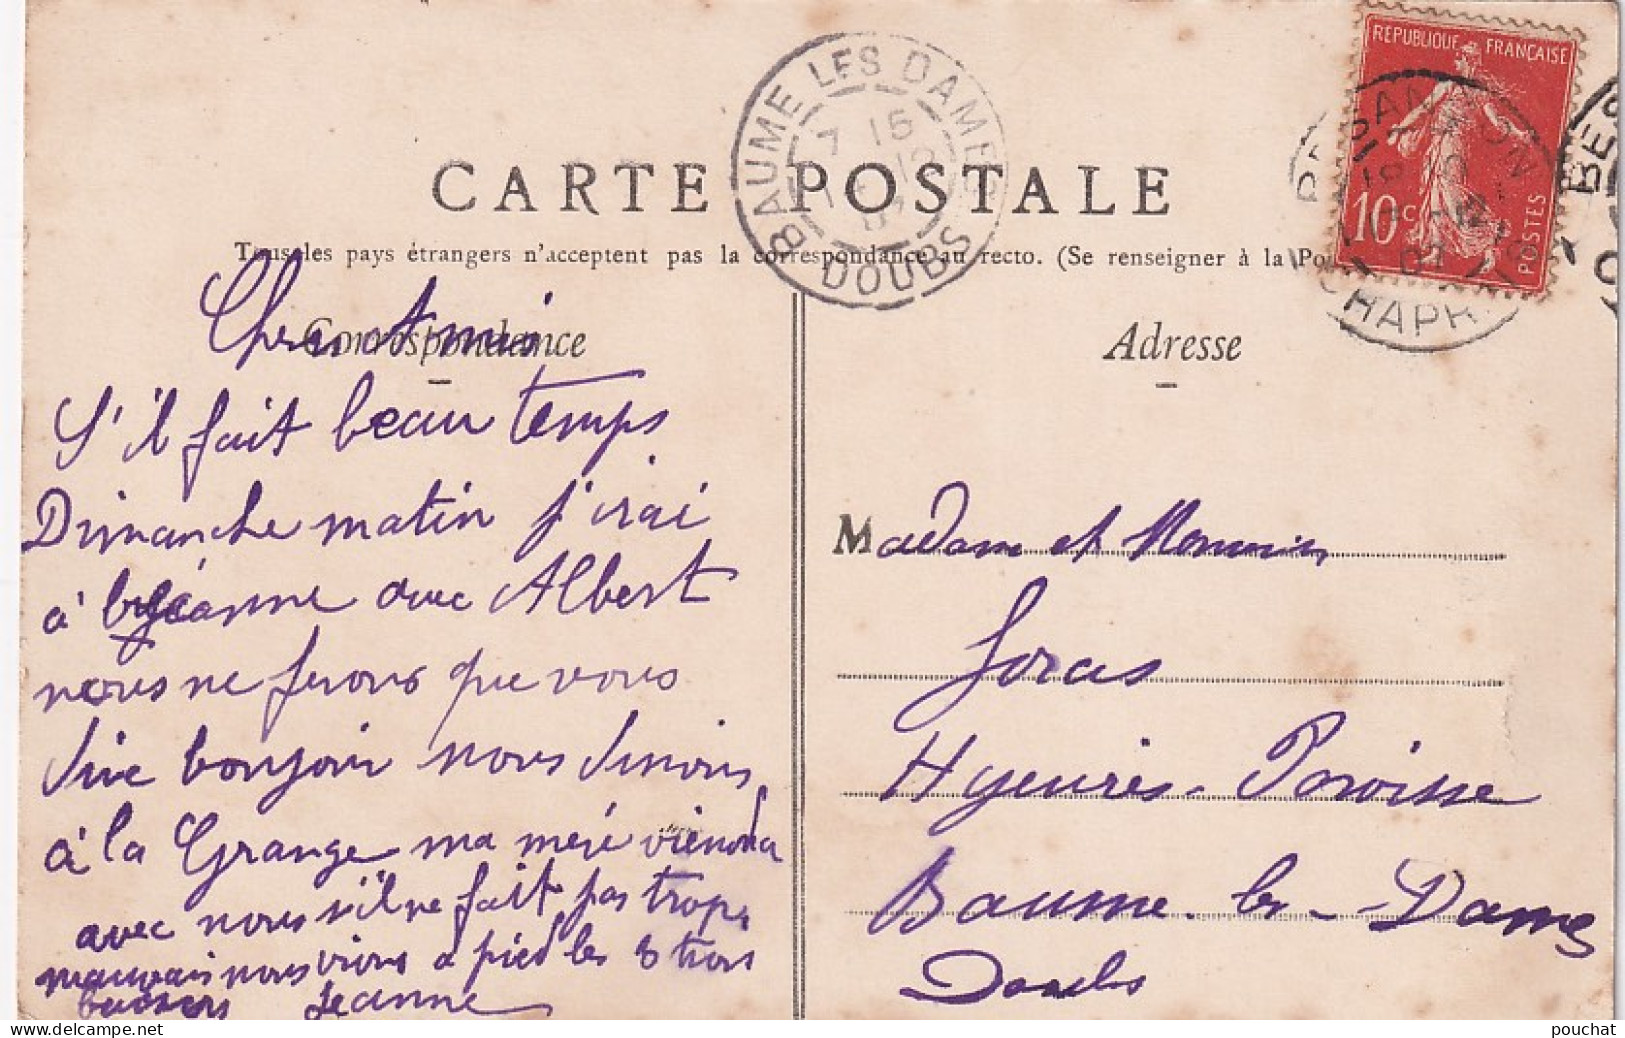 CARTE POSTALE
Tous les pays étrangers n'acceptent pas la correspondance au recto. (Se renseigner à la Po
Correspondance
Adresse
RÉPUBLIQUE FRANÇAISE
10 c.
POSTES
BAUME LES DAMES
7 15
DOUBS
Chers Amis
S'il fait beau temps
Dimanche matin j'irai
à avec Albert
nous ne ferons que vous
dire bonjour nous dinons
à la Grange ma mère viendra
avec nous s'il ne fait pas trop
mauvais nous irions a pied les 3 trois
baisers Jeanne
Madame et Monsieur
Joras
Hyeures - Paroisse
Baume-les-Dames
Doubs
pouchat